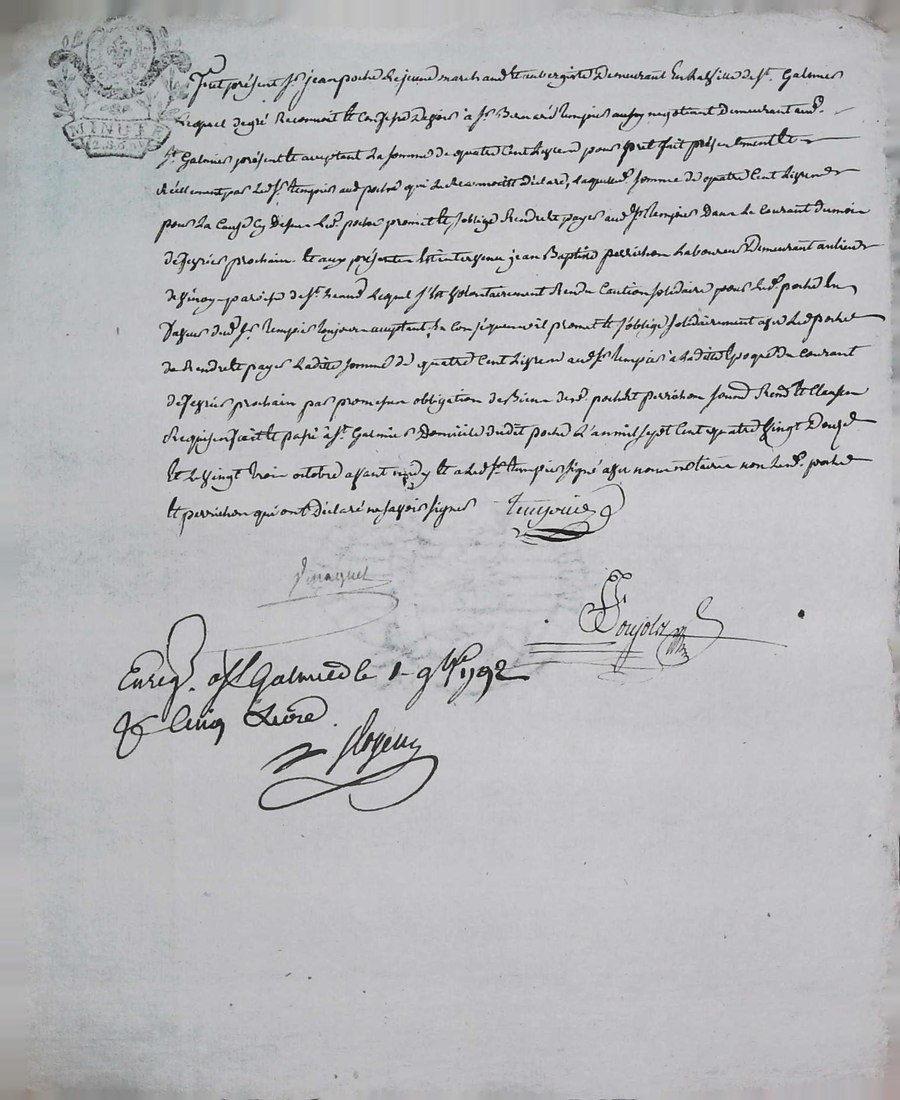 MINUTE
Fut présent Sr jean poche le jeune marchand et aubergiste Demeurant En la Ville de St. Galmier
Lequel de gré Reconnoit et Confesse Devoir à Sr Bernard tempier aussy negotiant Demeurant aud.
St Galmier présent et acceptant La somme de quatre Cent Livres pour pret fait présentement et
réellement par Led. Sr tempier aud poche qui Le Reconnoit et Déclare, Laquelle somme de quatre Cent Livres
pour La Cause Cy Dessus Led. poche promet et s'oblige Rendre et payer aud. Sr tempier Dans Le Courant du mois
de fevrier prochain. Et aux présentes Est intervenu jean Baptiste perrichon Laboureur Demeurant au lieu
de paroisse de St. Lequel s'Est Volontairement Rendu Caution solidaire pour Led. poche En
faveur dud. Sr tempier toujour acceptant, En Conséquence il promet et s'oblige solidairement avec Led poche
de Rendre et payer Ladite somme de quatre Cent Livres aud Sr tempier a Ladite Epoque du Courant
de fevrier prochain par promesses obligation de Biens desd. poche et perrichon soumd. Rend. Et Clauses
Requises fait et passé à St. Galmier Domicile dudit poche L'an mil sept Cent quatre Vingt Douze
Et Le Vingt trois octobre avant midy Et a Led. Sr tempier signé avec nous notaire non Led. poche
Et perrichon qui ont Déclaré ne savoir signer
Enreg. a St Galmier le 1 9bre 1792
Cinq Livre